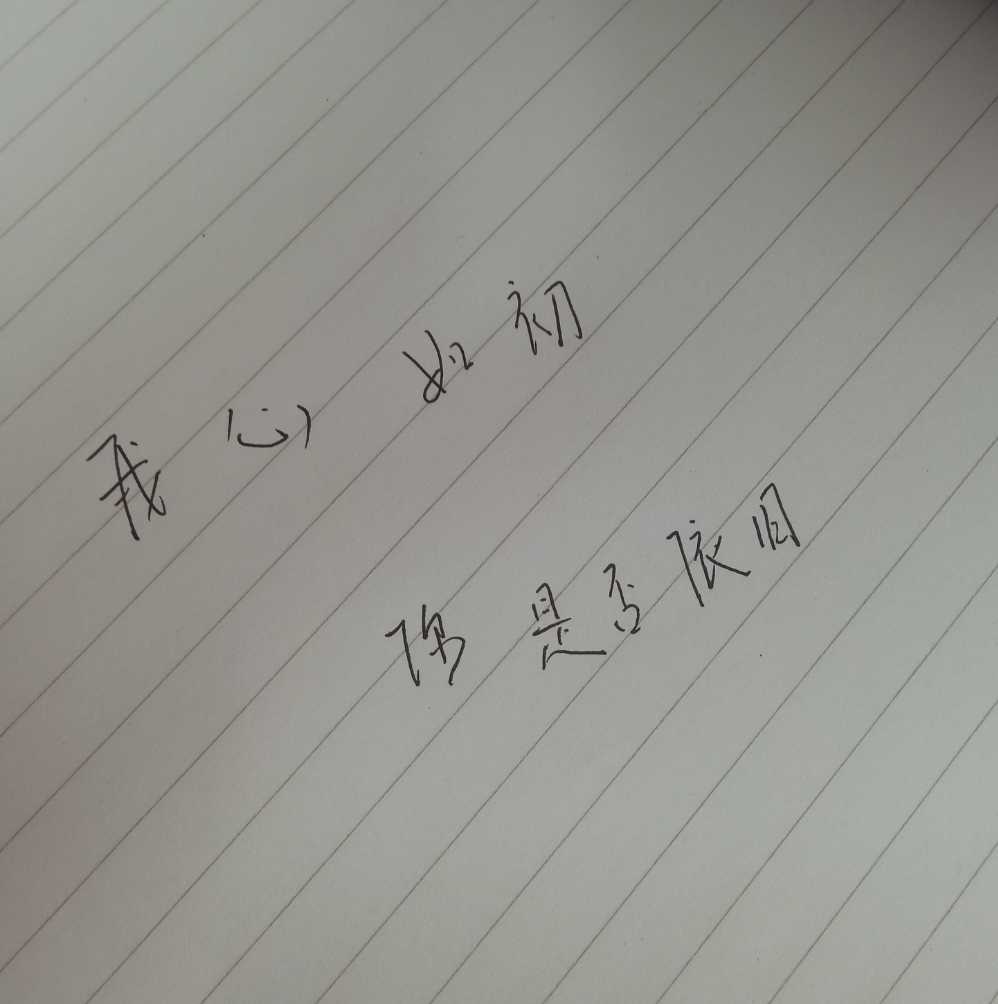 我心如初
你是否依旧